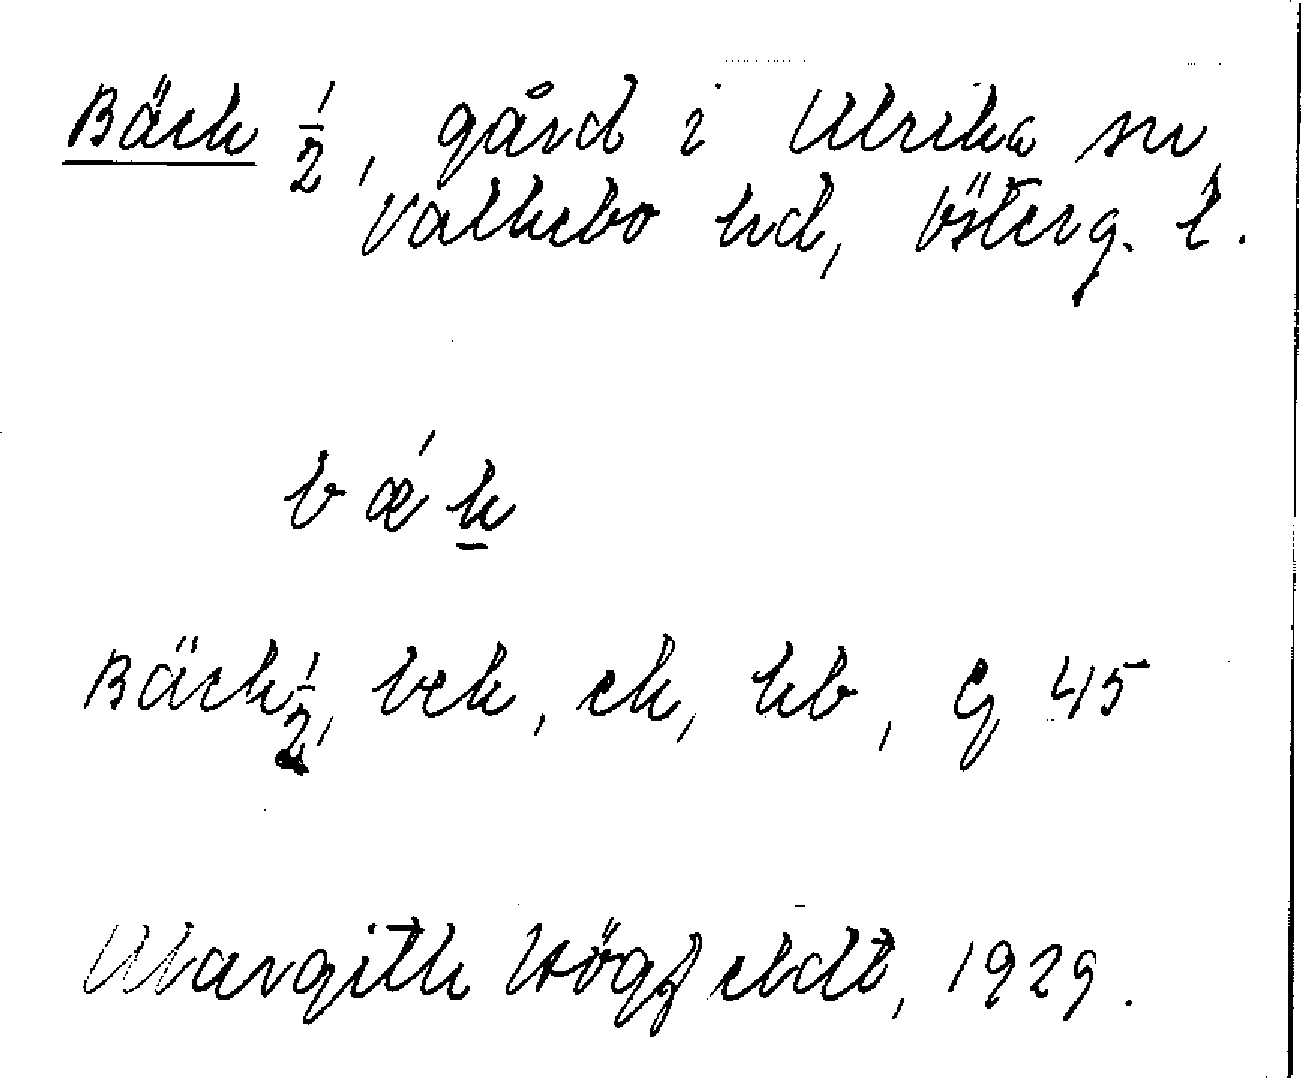 Bäck 1/2, gård i Ulrika sn,
Valkebo hd, Österg. l.
bǽk
Bäck 1/2, bck, ck, kb, G 45
Margith Högfeldt, 1929.